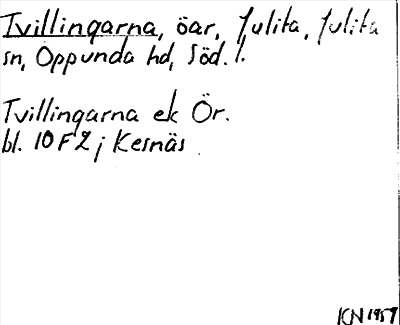 Tvillingarna, öar, Julita, Julita
sn, Oppunda hd, Söd. l.
Tvillingarna ek Ör.
bl. 10F2j Kesnäs
KN 1957